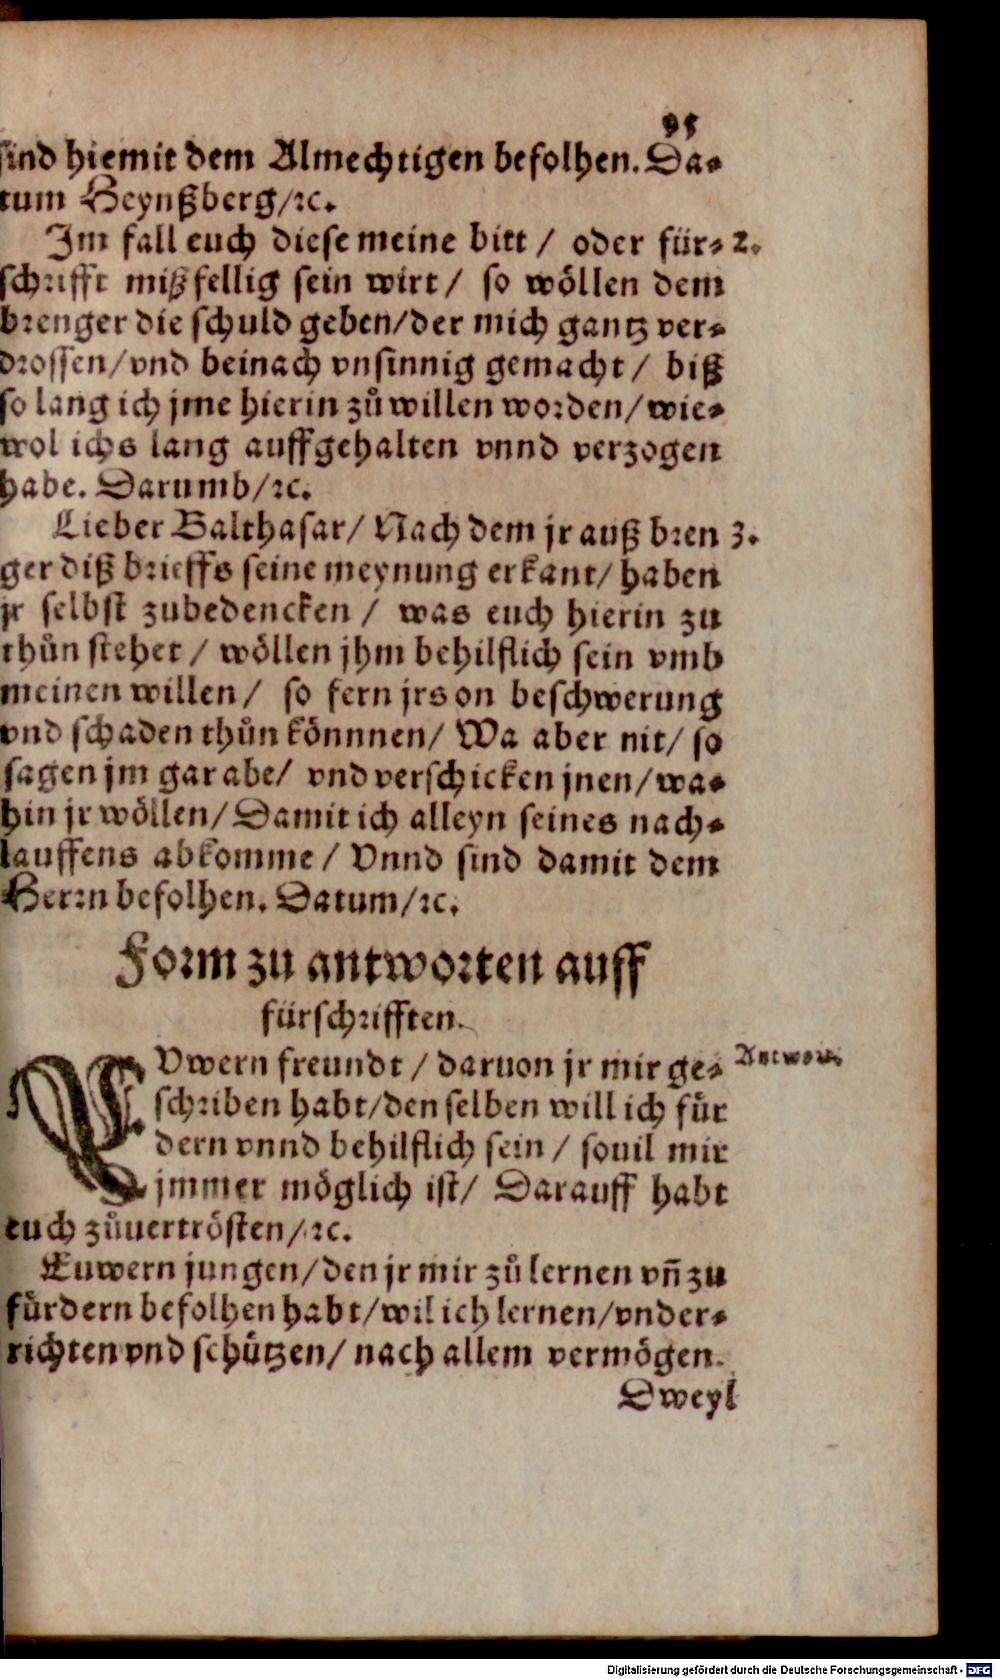 95
sind hiemit dem Almechtigen befolhen. Da⸗
tum Heynßberg/ ꝛc.
Im fall euch diese meine bitt / oder für⸗ 2.
schrifft mißfellig sein wirt / so wöllen dem
brenger die schuld geben/der mich gantz ver⸗
drossen/vnd beinach vnsinnig gemacht / biß
so lang ich jme hierin zůwillen worden/ wie⸗
wol ichs lang auffgehalten vnnd verzogen
habe. Darumb/ꝛc.
Lieber Balthasar/ Nach dem jr auß bren 3.
ger diß brieffs seine meynung erkant/ haben
jr selbst zubedencken / was euch hierin zu
thůn stehet / wöllen jhm behilflich sein vmb
meinen willen / so fern jrs on beschwerung
vnd schaden thůn könnnen/ Wa aber nit/ so
sagen jm gar abe/ vnd verschicken jnen/ wa⸗
hin jr wöllen/ Damit ich alleyn seines nach⸗
lauffens abkomme / Vnnd sind damit dem
Herrn befolhen. Datum/ꝛc.
Form zu antworten auff
fürschrifften.
EVwern freundt / daruon jr mir ge⸗ Antwort.
schriben habt/den selben will ich für
dern vnnd behilflich sein / souil mir
jmmer möglich ist/ Darauff habt
euch zůuertrösten/ꝛc.
Euwern jungen/den jr mir zů lernen vñ zu
fürdern befolhen habt/wil ich lernen/vnder⸗
richten vnd schützen/ nach allem vermögen.
Dweyl
Digitalisierung gefördert durch die Deutsche Forschungsgemeinschaft - DFG